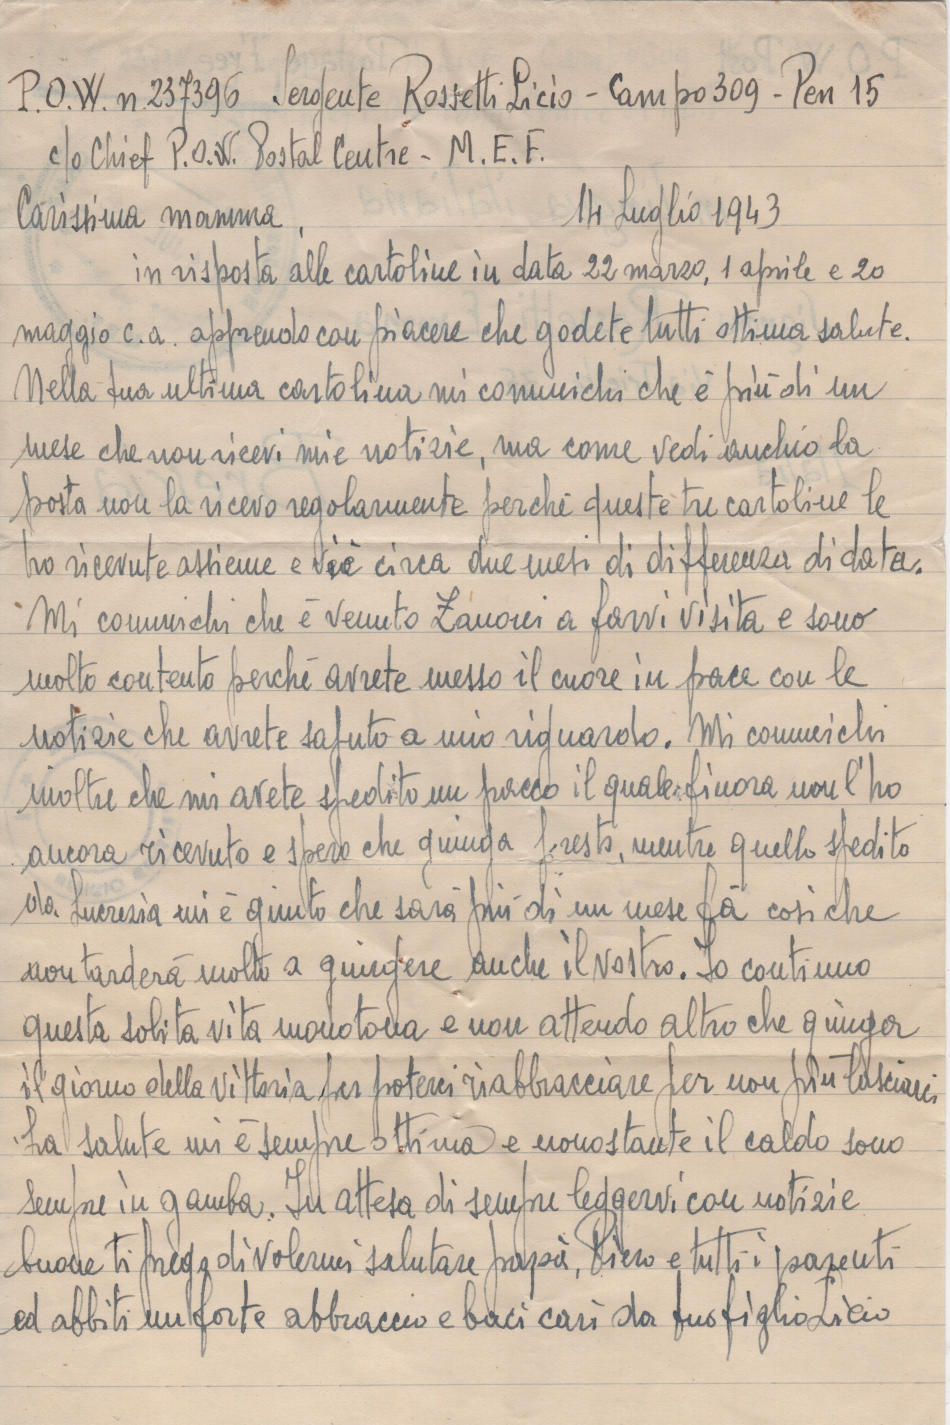 P.O.W. n. 237396 Sergente Rossetti Licio - Campo 309 - Pen 15
c/o Chief P.O.W. Postal Centre - M.E.F.
Carissima mamma, 14 Luglio 1943
in risposta alle cartoline in data 22 marzo, 1 aprile e 20
maggio c.a. apprendo con piacere che godete tutti ottima salute.
Nella tua ultima cartolina mi comunichi che è più di un
mese che non ricevi mie notizie, ma come vedi anch'io la
posta non la ricevo regolarmente perché queste tre cartoline le
ho ricevute assieme e c'è circa due mesi di differenza di data.
Mi comunichi che è venuto Zanoni a farvi visita e sono
molto contento perché avrete messo il cuore in pace con le
notizie che avrete saputo a mio riguardo. Mi comunichi
inoltre che mi avete spedito un pacco il quale finora non l'ho
ancora ricevuto e spero che giunga presto, mentre quello spedito
da Lucrezia mi è giunto che sarà più di un mese fà così che
non tarderà molto a giungere anche il vostro. Io continuo
questa solita vita monotona e non attendo altro che giunger
il giorno della vittoria per poterci riabbracciare per non più lasciarci
La salute mi è sempre ottima e nonostante il caldo sono
sempre in gamba. In attesa di sempre leggervi con notizie
buone ti prego di volermi salutare papà, Piero e tutti i parenti
ed abbiti un forte abbraccio e baci cari da tuo figlio Licio